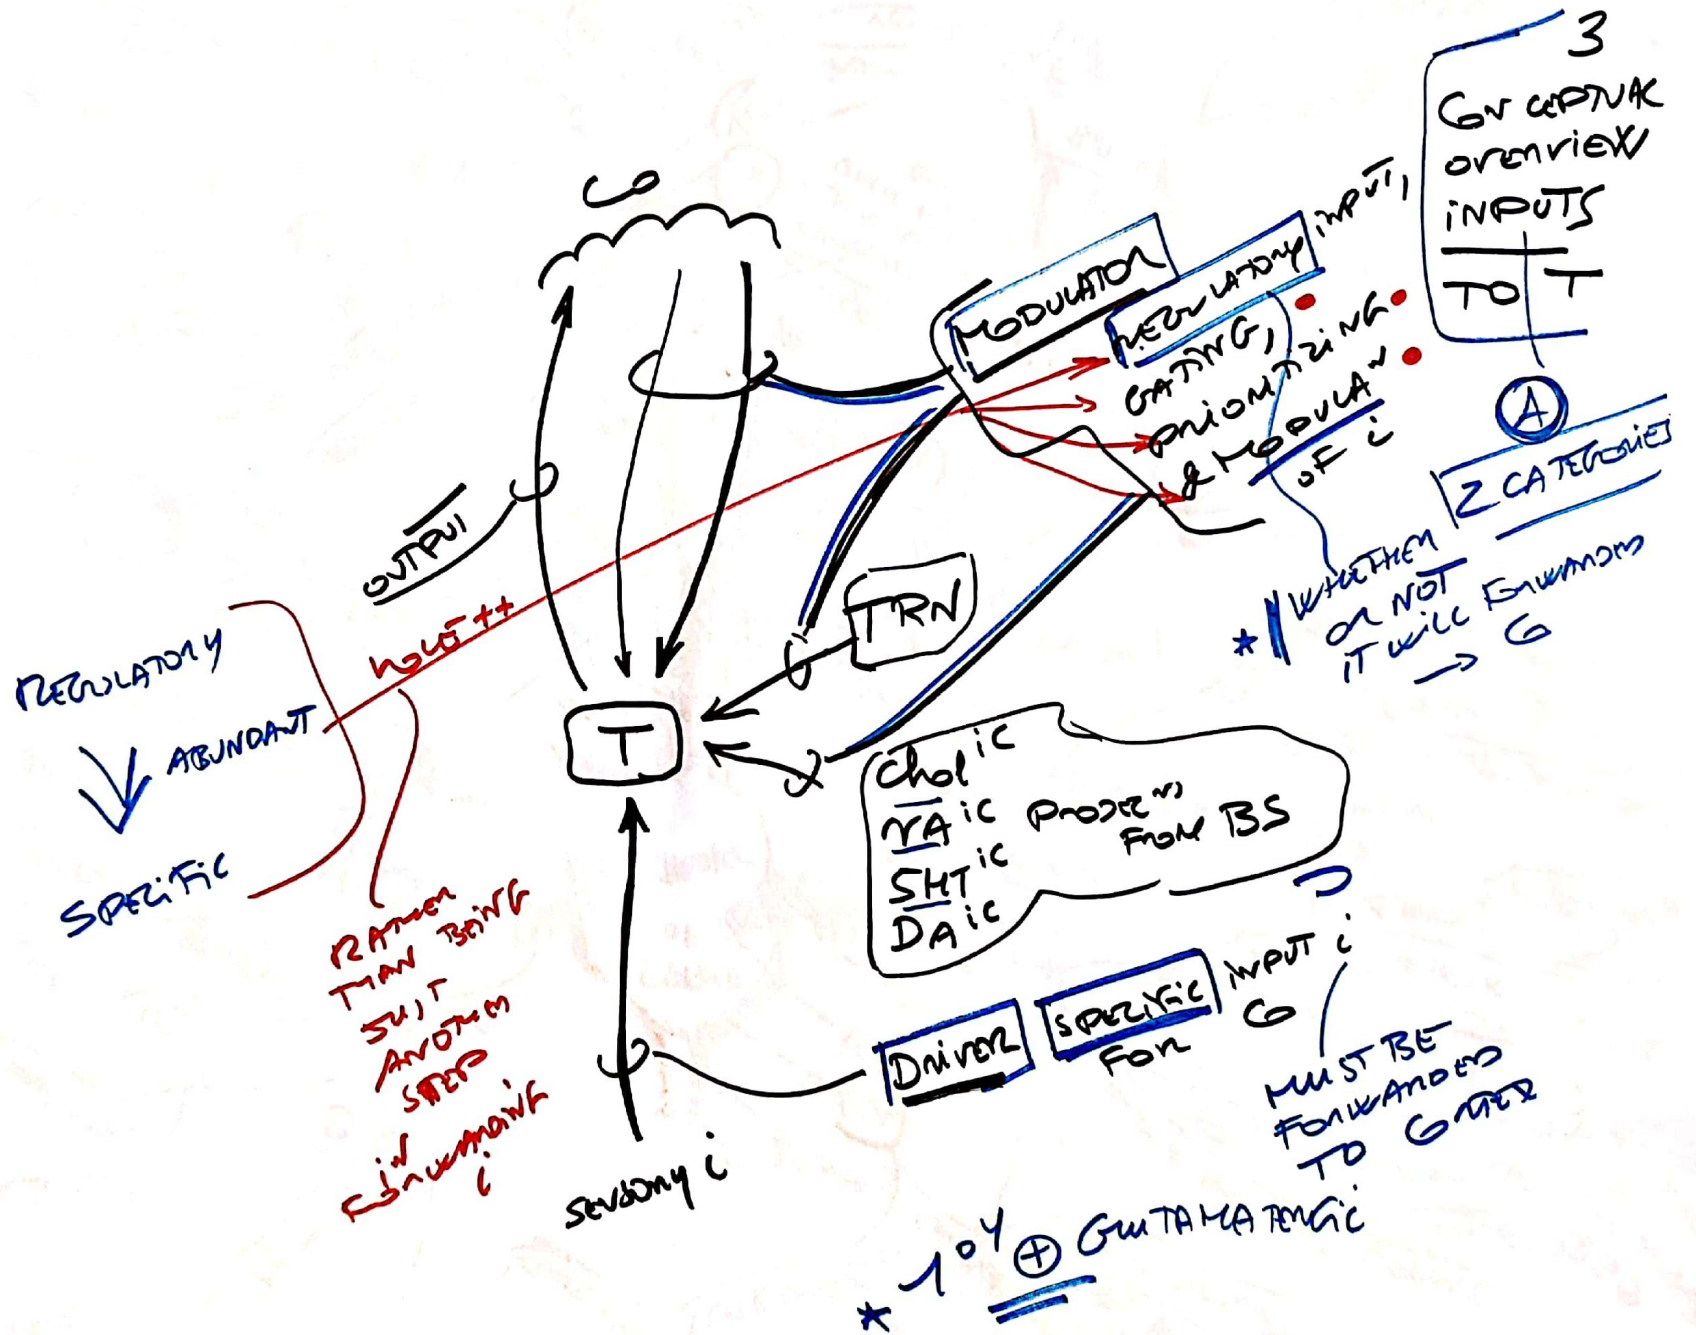 3
CONCEPTUAL
OVERVIEW
INPUTS
TO T
A
2 CATEGORIES
CO
MODULATOR
REGULATORY INPUT,
GATING,
PRIORITIZING
& MODULAN
OF i
* WHETHER
OR NOT
IT WILL FORWARDED
→ CO
OUTPUT
TRN
T
REGULATORY
↓ ABUNDANT
SPECIFIC
ROLE ++
RATHER
THAN BEING
JUST
ANOTHER
STEP
IN
FORWARDING
i
Chol ic
NA ic PROJEC NS
FROM BS
5HT ic
DA ic
DRIVER SPECIFIC INPUT i
FOR CO
MUST BE
FORWARDED
TO CORTEX
SENSORY i
* 1 0Y ⊕ GLUTAMATERGIC